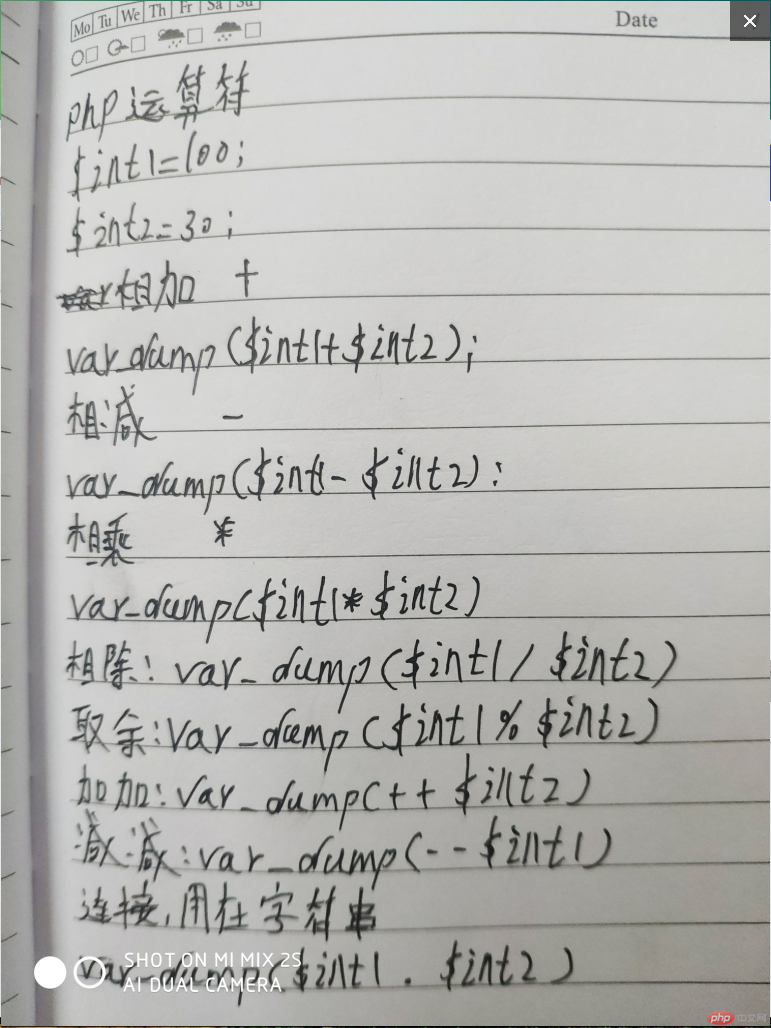 Mo Tu We Th Fr Sa Su
Date
php 运算符
$int1=100;
$int2=30;
相加 +
var_dump($int1+$int2);
相减 -
var_dump($int1- $int2);
相乘 *
var_dump($int1* $int2)
相除: var_dump($int1/ $int2)
取余:var_dump($int1% $int2)
加加:var_dump(++ $int2)
减减:var_dump(--$int1)
连接,用在字符串
var_dump($int1 . $int2)
SHOT ON MI MIX 2S
AI DUAL CAMERA
php 中文网